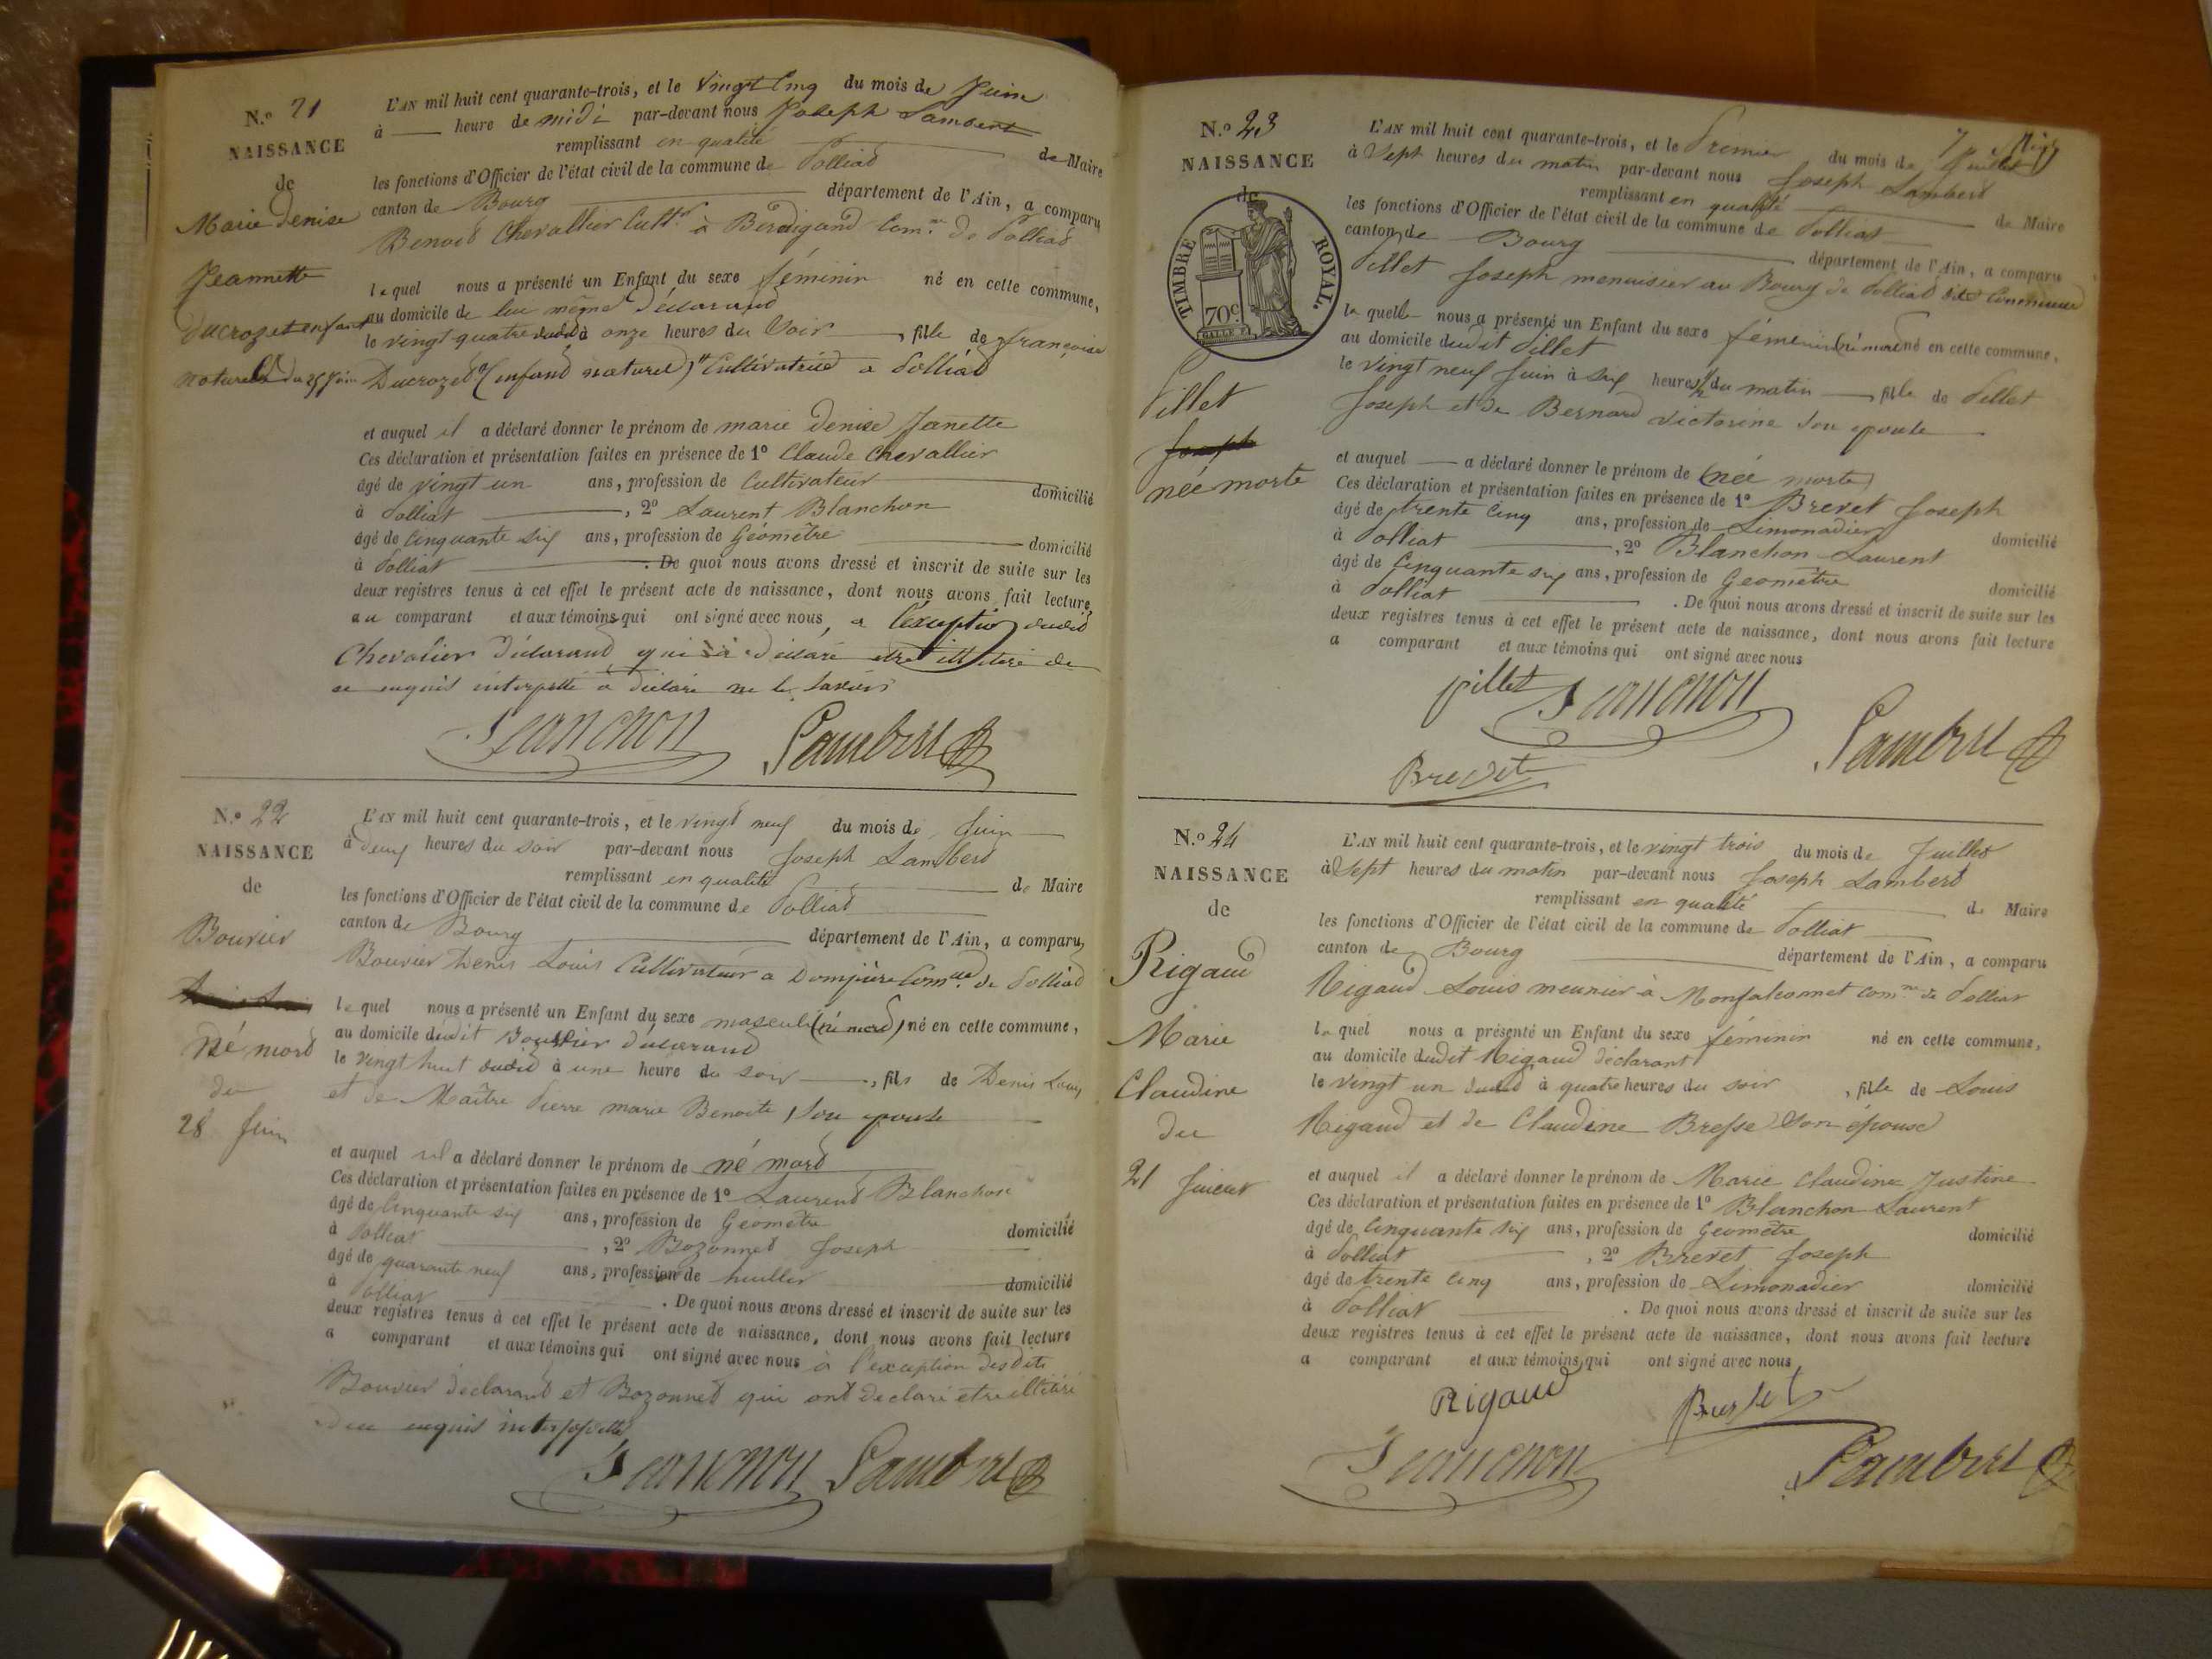 N.º 21
NAISSANCE
de
Marie Denise
Jeannette
Ducrozet enfant
naturel du 25 Juin
L'AN mil huit cent quarante-trois, et le vingt Cinq du mois de Juin
à — heure de midi par-devant nous Joseph Lambert
remplissant en qualité de Maire
les fonctions d'Officier de l'état civil de la commune de Polliat
canton de Bourg département de l'Ain, a comparu
Benoit Chevallier Cultr à Berdigand Comne de Polliat
lequel nous a présenté un Enfant du sexe féminin né en cette commune,
au domicile de lui même déclarant
le vingt quatre dudit à onze heures du Soir, fille de françoise
Ducrozet (enfant naturel) Cultivatrice a Polliat
et auquel il a déclaré donner le prénom de marie denise Janette
Ces déclaration et présentation faites en présence de 1º Claude Chevallier
âgé de vingt un ans, profession de Cultivateur domicilié
à Polliat, 2º Laurent Blanchon
âgé de Cinquante six ans, profession de Géomêtre domicilié
à Polliat. De quoi nous avons dressé et inscrit de suite sur les
deux registres tenus à cet effet le présent acte de naissance, dont nous avons fait lecture
au comparant et aux témoins qui ont signé avec nous, a l'exception dudit
Chevalier déclarant qui a déclaré etre illiteré de
ce enquis interpellé a déclaré ne le savoir
Blanchon Lambert
N.º 22
NAISSANCE
de
Bouvier
né mort
du
28 Juin
L'AN mil huit cent quarante-trois, et le vingt neuf du mois de Juin
à deux heures du soir par-devant nous Joseph Lambert
remplissant en qualité de Maire
les fonctions d'Officier de l'état civil de la commune de Polliat
canton de Bourg département de l'Ain, a comparu
Bouvier Denis Louis Cultivateur a Dompière Comne de Polliat
lequel nous a présenté un Enfant du sexe masculin (né mort) né en cette commune,
au domicile dudit Bouvier déclarant
le vingt huit dudit à une heure du soir, fils de Denis Louis
et de Maître Pierre marie Benoite, son epouse
et auquel il a déclaré donner le prénom de né mort
Ces déclaration et présentation faites en présence de 1º Laurent Blanchon
âgé de Cinquante six ans, profession de Géomêtre domicilié
à Polliat, 2º Bozonnet Joseph
âgé de quarante neuf ans, profession de huillier domicilié
à Polliat. De quoi nous avons dressé et inscrit de suite sur les
deux registres tenus à cet effet le présent acte de naissance, dont nous avons fait lecture
a comparant et aux témoins qui ont signé avec nous à l'exception desdits
Bouvier déclarant et Bozonnet qui ont declaré etre illitéré
de ce enquis interpellé
Blanchon Lambert
N.º 23
NAISSANCE
de
TIMBRE ROYAL.
70c.
Pillet
Joseph
née morte
L'AN mil huit cent quarante-trois, et le Premier du mois de Juillet
à Sept heures du matin par-devant nous Joseph Lambert
remplissant en qualité de Maire
les fonctions d'Officier de l'état civil de la commune de Polliat
canton de Bourg département de l'Ain, a comparu
Pillet Joseph menuisier au Bourg de Polliat dite Commune
lequel nous a présenté un Enfant du sexe féminin (né mort) né en cette commune,
au domicile dudit Pillet
le vingt neuf Juin à six heures du matin, fille de Pillet
Joseph et de Bernard victorine son epouse
et auquel — a déclaré donner le prénom de (née morte)
Ces déclaration et présentation faites en présence de 1º Brevet Joseph
âgé de trente Cinq ans, profession de Limonadier domicilié
à Polliat, 2º Blanchon Laurent
âgé de Cinquante six ans, profession de Geomêtre domicilié
à Polliat. De quoi nous avons dressé et inscrit de suite sur les
deux registres tenus à cet effet le présent acte de naissance, dont nous avons fait lecture
a comparant et aux témoins qui ont signé avec nous
pillet Blanchon
Lambert
Brevet
N.º 24
NAISSANCE
de
Rigaud
Marie
Claudine
du
21 Juillet
L'AN mil huit cent quarante-trois, et le vingt trois du mois de Juillet
à Sept heures du matin par-devant nous Joseph Lambert
remplissant en qualité de Maire
les fonctions d'Officier de l'état civil de la commune de Polliat
canton de Bourg département de l'Ain, a comparu
Rigaud Louis meunier à Monfalconnet comne de Polliat
lequel nous a présenté un Enfant du sexe féminin né en cette commune,
au domicile dudit Rigaud déclarant
le vingt un dudit à quatre heures du soir, fille de Louis
Rigaud et de Claudine Bresse Son épouse
et auquel il a déclaré donner le prénom de Marie Claudine Justine
Ces déclaration et présentation faites en présence de 1º Blanchon Laurent
âgé de Cinquante six ans, profession de Geomêtre domicilié
à Polliat, 2º Brevet Joseph
âgé de trente Cinq ans, profession de Limonadier domicilié
à Polliat. De quoi nous avons dressé et inscrit de suite sur les
deux registres tenus à cet effet le présent acte de naissance, dont nous avons fait lecture
a comparant et aux témoins qui ont signé avec nous
Rigaud Brevet
Blanchon Lambert